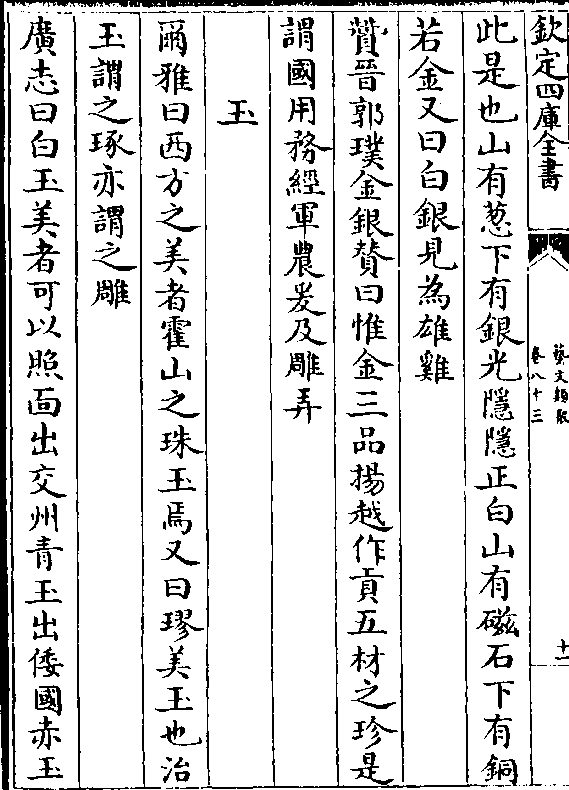 欽定四庫全書
藝文類聚
卷八十三
十二
此是也山有葱下有銀光隱隱正白山有磁石下有銅
若金又曰白銀見為雄雞
贊晉郭璞金銀贊曰惟金三品揚越作貢五材之珍是
謂國用務經軍農爰及雕弄
玉
爾雅曰西方之美者霍山之珠玉焉又曰璆美玉也治
玉謂之琢亦謂之雕
廣志曰白玉美者可以照面出交州青玉出倭國赤玉